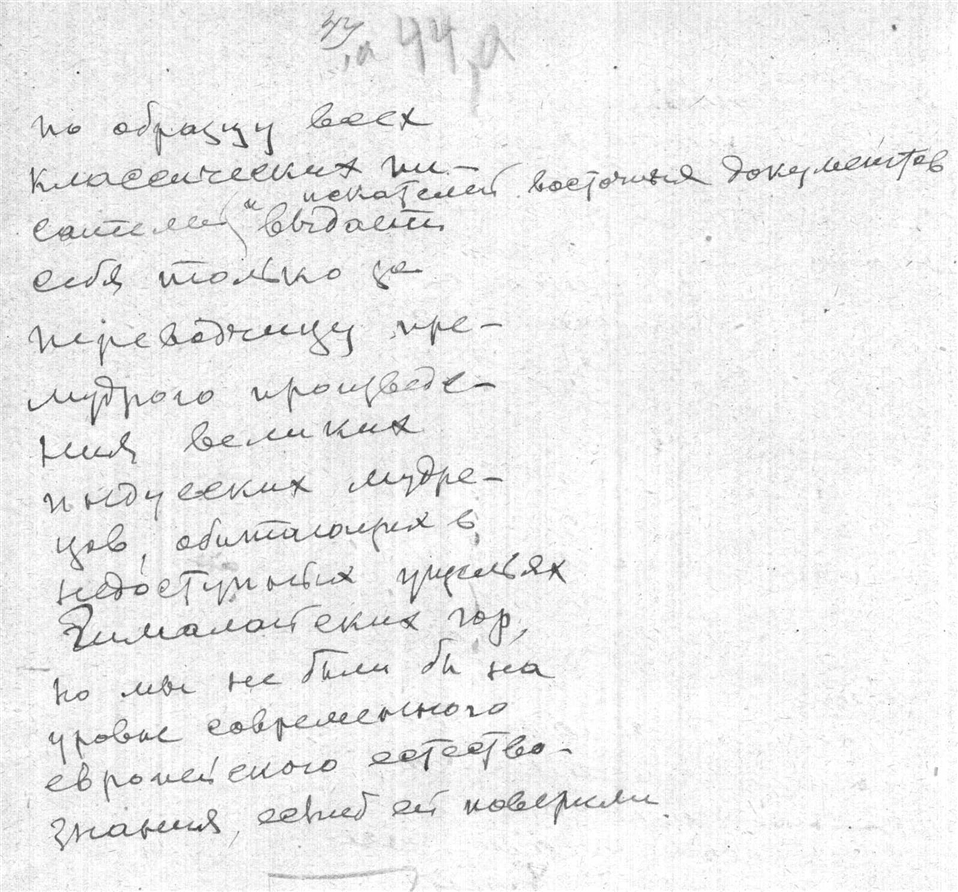 44,а 44,а
по образцу всех
классических пи-
сателей и искателей восточных документов
выдает
себя только за
переводчицу пре-
мудрого произведе-
ния великих
индусских мудре-
цов, обитающих в
недоступных ущельях
Гималайских гор,
но мы не были бы на
уровне современного
европейского естество-
знания, если б ей поверили